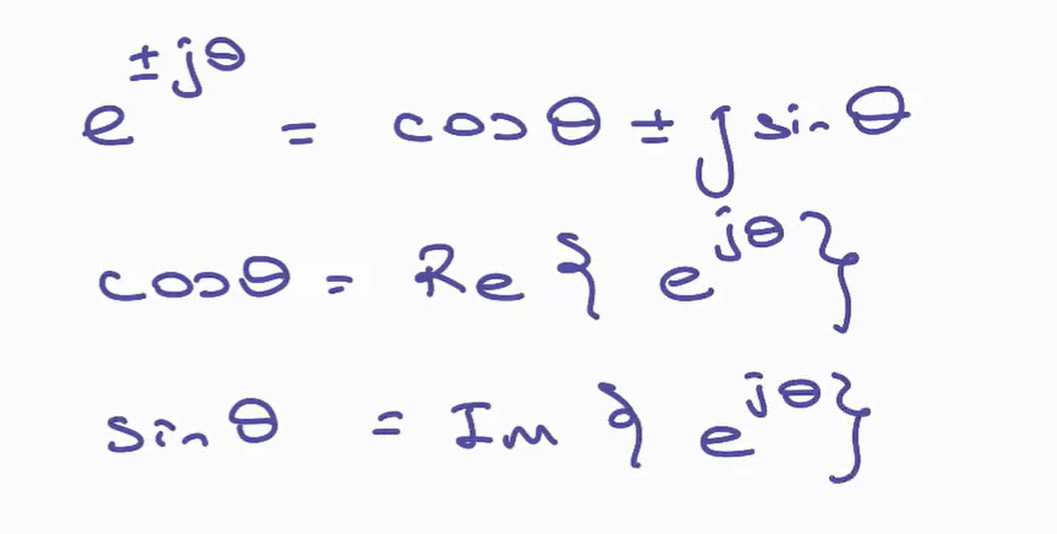 e^{±jθ} = cosθ ± j sinθ
cosθ = Re { e^{jθ} }
sinθ = Im { e^{jθ} }